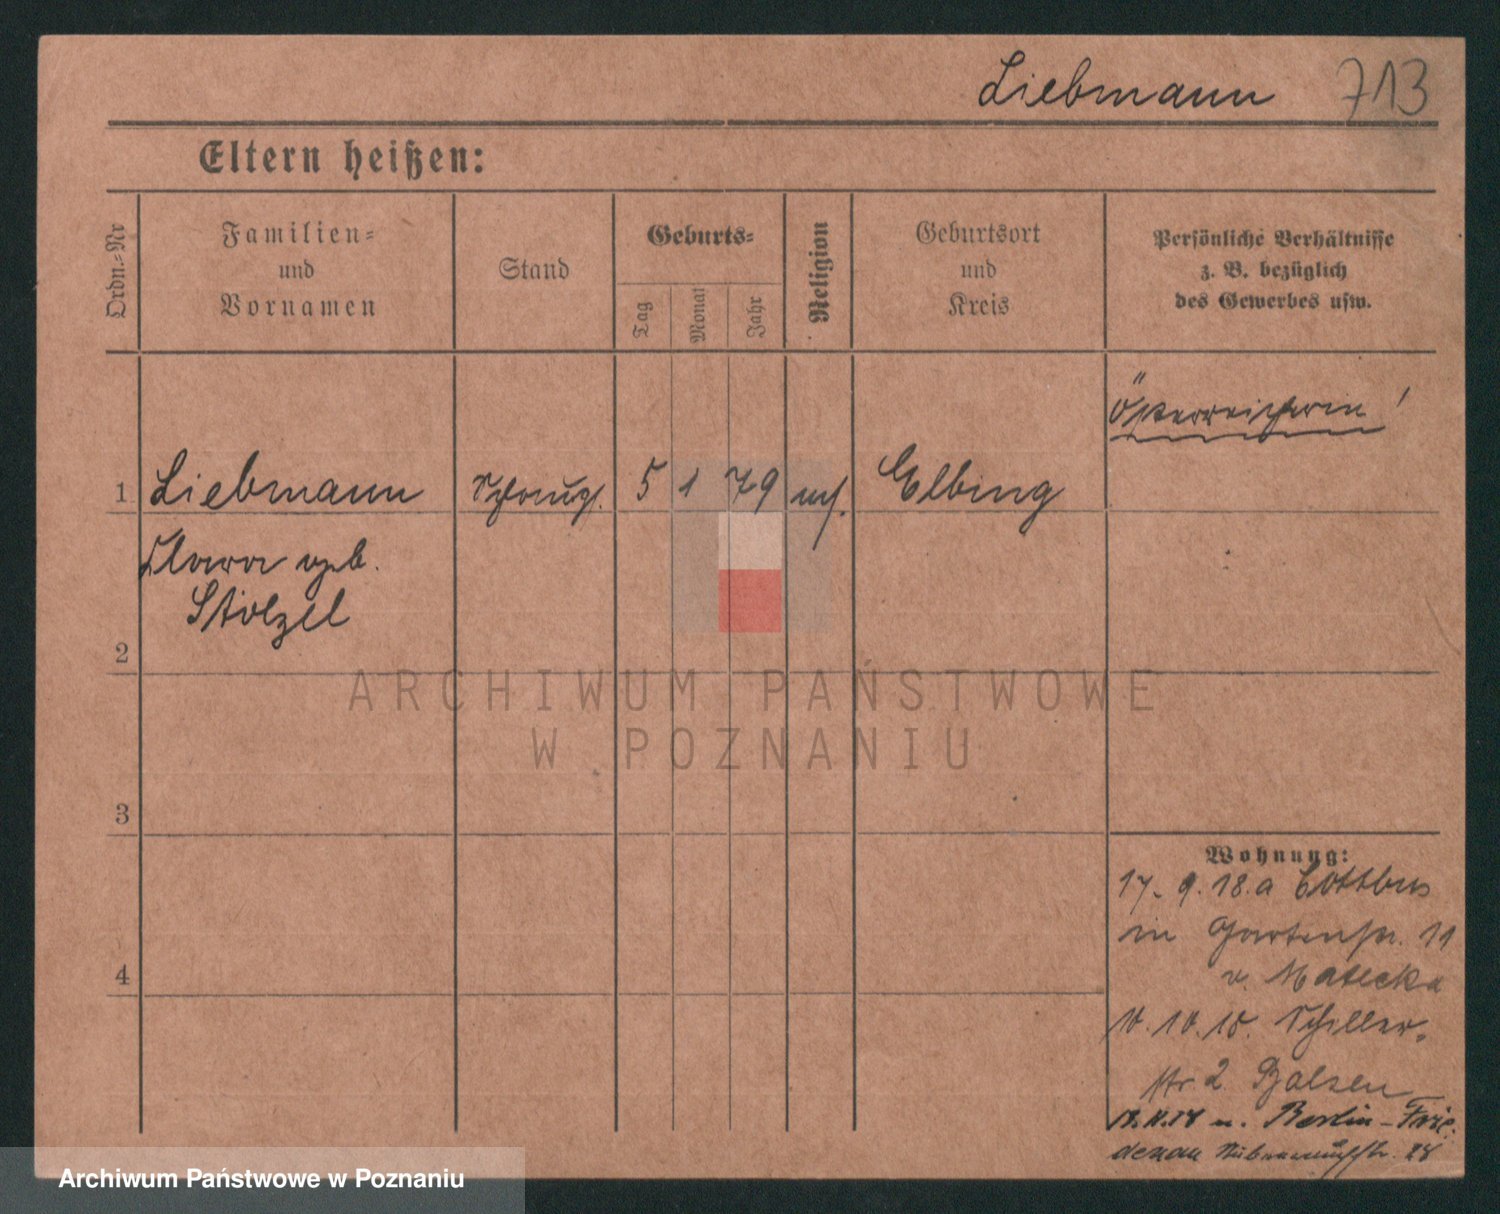 Liebmann 713
Eltern heißen:
Ordn.-Nr
Familien-
und
Vornamen
Stand
Geburts-
Tag
Monat
Jahr
Religion
Geburtsort
und
Kreis
Persönliche Verhältnisse
z. B. bezüglich
des Gewerbes usw.
Österreicherin!
1 Liebmann Schausp. 5 1 79 Elbing
Clara geb.
Stölzel
2
3
4
Wohnung:
17. 9. 18. a Cottbus
in Gartenstr. 11
v. Matecka
10. 18. Schiller-
str. 2 Balzen
n. Berlin-Frie-
denau 28
ARCHIWUM PAŃSTWOWE
W POZNANIU
Archiwum Państwowe w Poznaniu